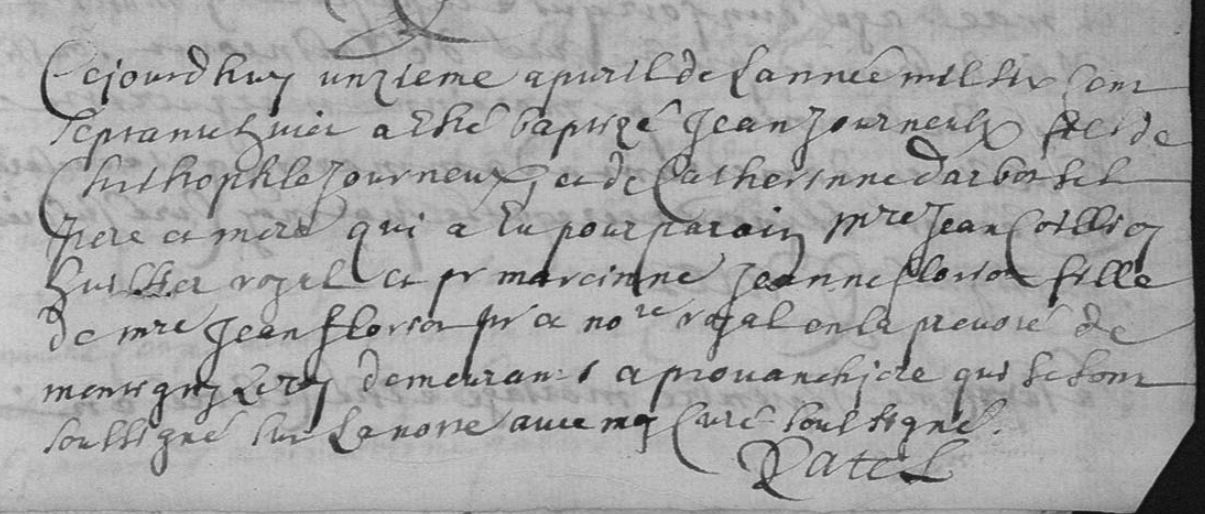 Cejourdhuy unzieme apvril de Lannée mil six Cent
septante huict a Esté baptizé Jean Journeulx fils de
Christhophle Journeux et de Catherinne
pere et mere qui a Eu pour parain Mre Jean
huissier royal et pr mareinne Jeanne Floriot fille
de mre Jean Floriot pr et nore royal en la prevosté de
montigny Le roy demeurants a prouanchiere qui se sont
soubsigné sur La notte avec moy Curé soubsigné.